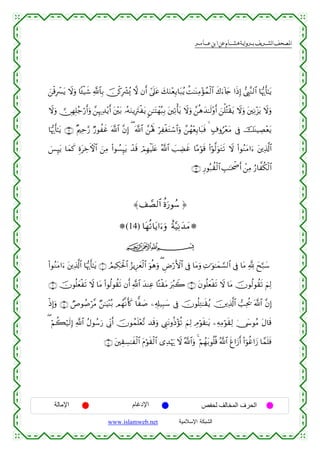 المصحف الشريف برواية هشام عن ابن عامر
يَٰٓأَيُّهَا ٱلنَّبِيُّ إِذَا جَآءَكَ ٱلْمُؤْمِنَٰتُ يُبَايِعْنَكَ عَلَىٰٓ أَن لَّا يُشْرِكْنَ بِٱللَّهِ شَيْـًٔا وَلَا يَسْرِقْنَ
وَلَا يَزْنِينَ وَلَا يَقْتُلْنَ أَوْلَٰدَهُنَّ وَلَا يَأْتِينَ بِبُهْتَٰنٍ يَفْتَرِينَهُۥ بَيْنَ أَيْدِيهِنَّ وَأَرْجُلِهِنَّ وَلَا
يَعْصِينَكَ فِي مَعْرُوفٍ ۙ فَبَايِعْهُنَّ وَٱسْتَغْفِرْ لَهُنَّ ٱللَّهَ ۖ إِنَّ ٱللَّهَ غَفُورٌ رَّحِيمٌ يَٰٓأَيُّهَا
ٱلَّذِينَ ءَامَنُوا۟ لَا تَتَوَلَّوْا۟ قَوْمًا غَضِبَ ٱللَّهُ عَلَيْهِمْ قَدْ يَئِسُوا۟ مِنَ ٱلْءَاخِرَةِ كَمَا يَئِسَ
ٱلْكُفَّارُ مِنْ أَصْحَٰبِ ٱلْقُبُورِ
﴿ سُورَةُ ٱلصَّفِّ ﴾
مَدَنِيَّةٌ وَءَايَاتُهَا (14)
بِسْمِ ٱللَّهِ ٱلرَّحْمَٰنِ ٱلرَّحِيمِ
سَبَّحَ لِلَّهِ مَا فِي ٱلسَّمَٰوَٰتِ وَمَا فِي ٱلْأَرْضِ ۖ وَهُوَ ٱلْعَزِيزُ ٱلْحَكِيمُ يَٰٓأَيُّهَا ٱلَّذِينَ ءَامَنُوا۟
لِمَ تَقُولُونَ مَا لَا تَفْعَلُونَ كَبُرَ مَقْتًا عِندَ ٱللَّهِ أَن تَقُولُوا۟ مَا لَا تَفْعَلُونَ
إِنَّ ٱللَّهَ يُحِبُّ ٱلَّذِينَ يُقَٰتِلُونَ فِي سَبِيلِهِۦ صَفًّا كَأَنَّهُم بُنْيَٰنٌ مَّرْصُوصٌ وَإِذْ
قَالَ مُوسَىٰ لِقَوْمِهِۦ يَٰقَوْمِ لِمَ تُؤْذُونَنِي وَقَد تَّعْلَمُونَ أَنِّي رَسُولُ ٱللَّهِ إِلَيْكُمْ ۖ
فَلَمَّا زَاغُوٓا۟ أَزَاغَ ٱللَّهُ قُلُوبَهُمْ ۚ وَٱللَّهُ لَا يَهْدِي ٱلْقَوْمَ ٱلْفَٰسِقِينَ
الحرف المخالف لحفص الإدغام الإمالة
الشبكة الإسلامية www.islamweb.net